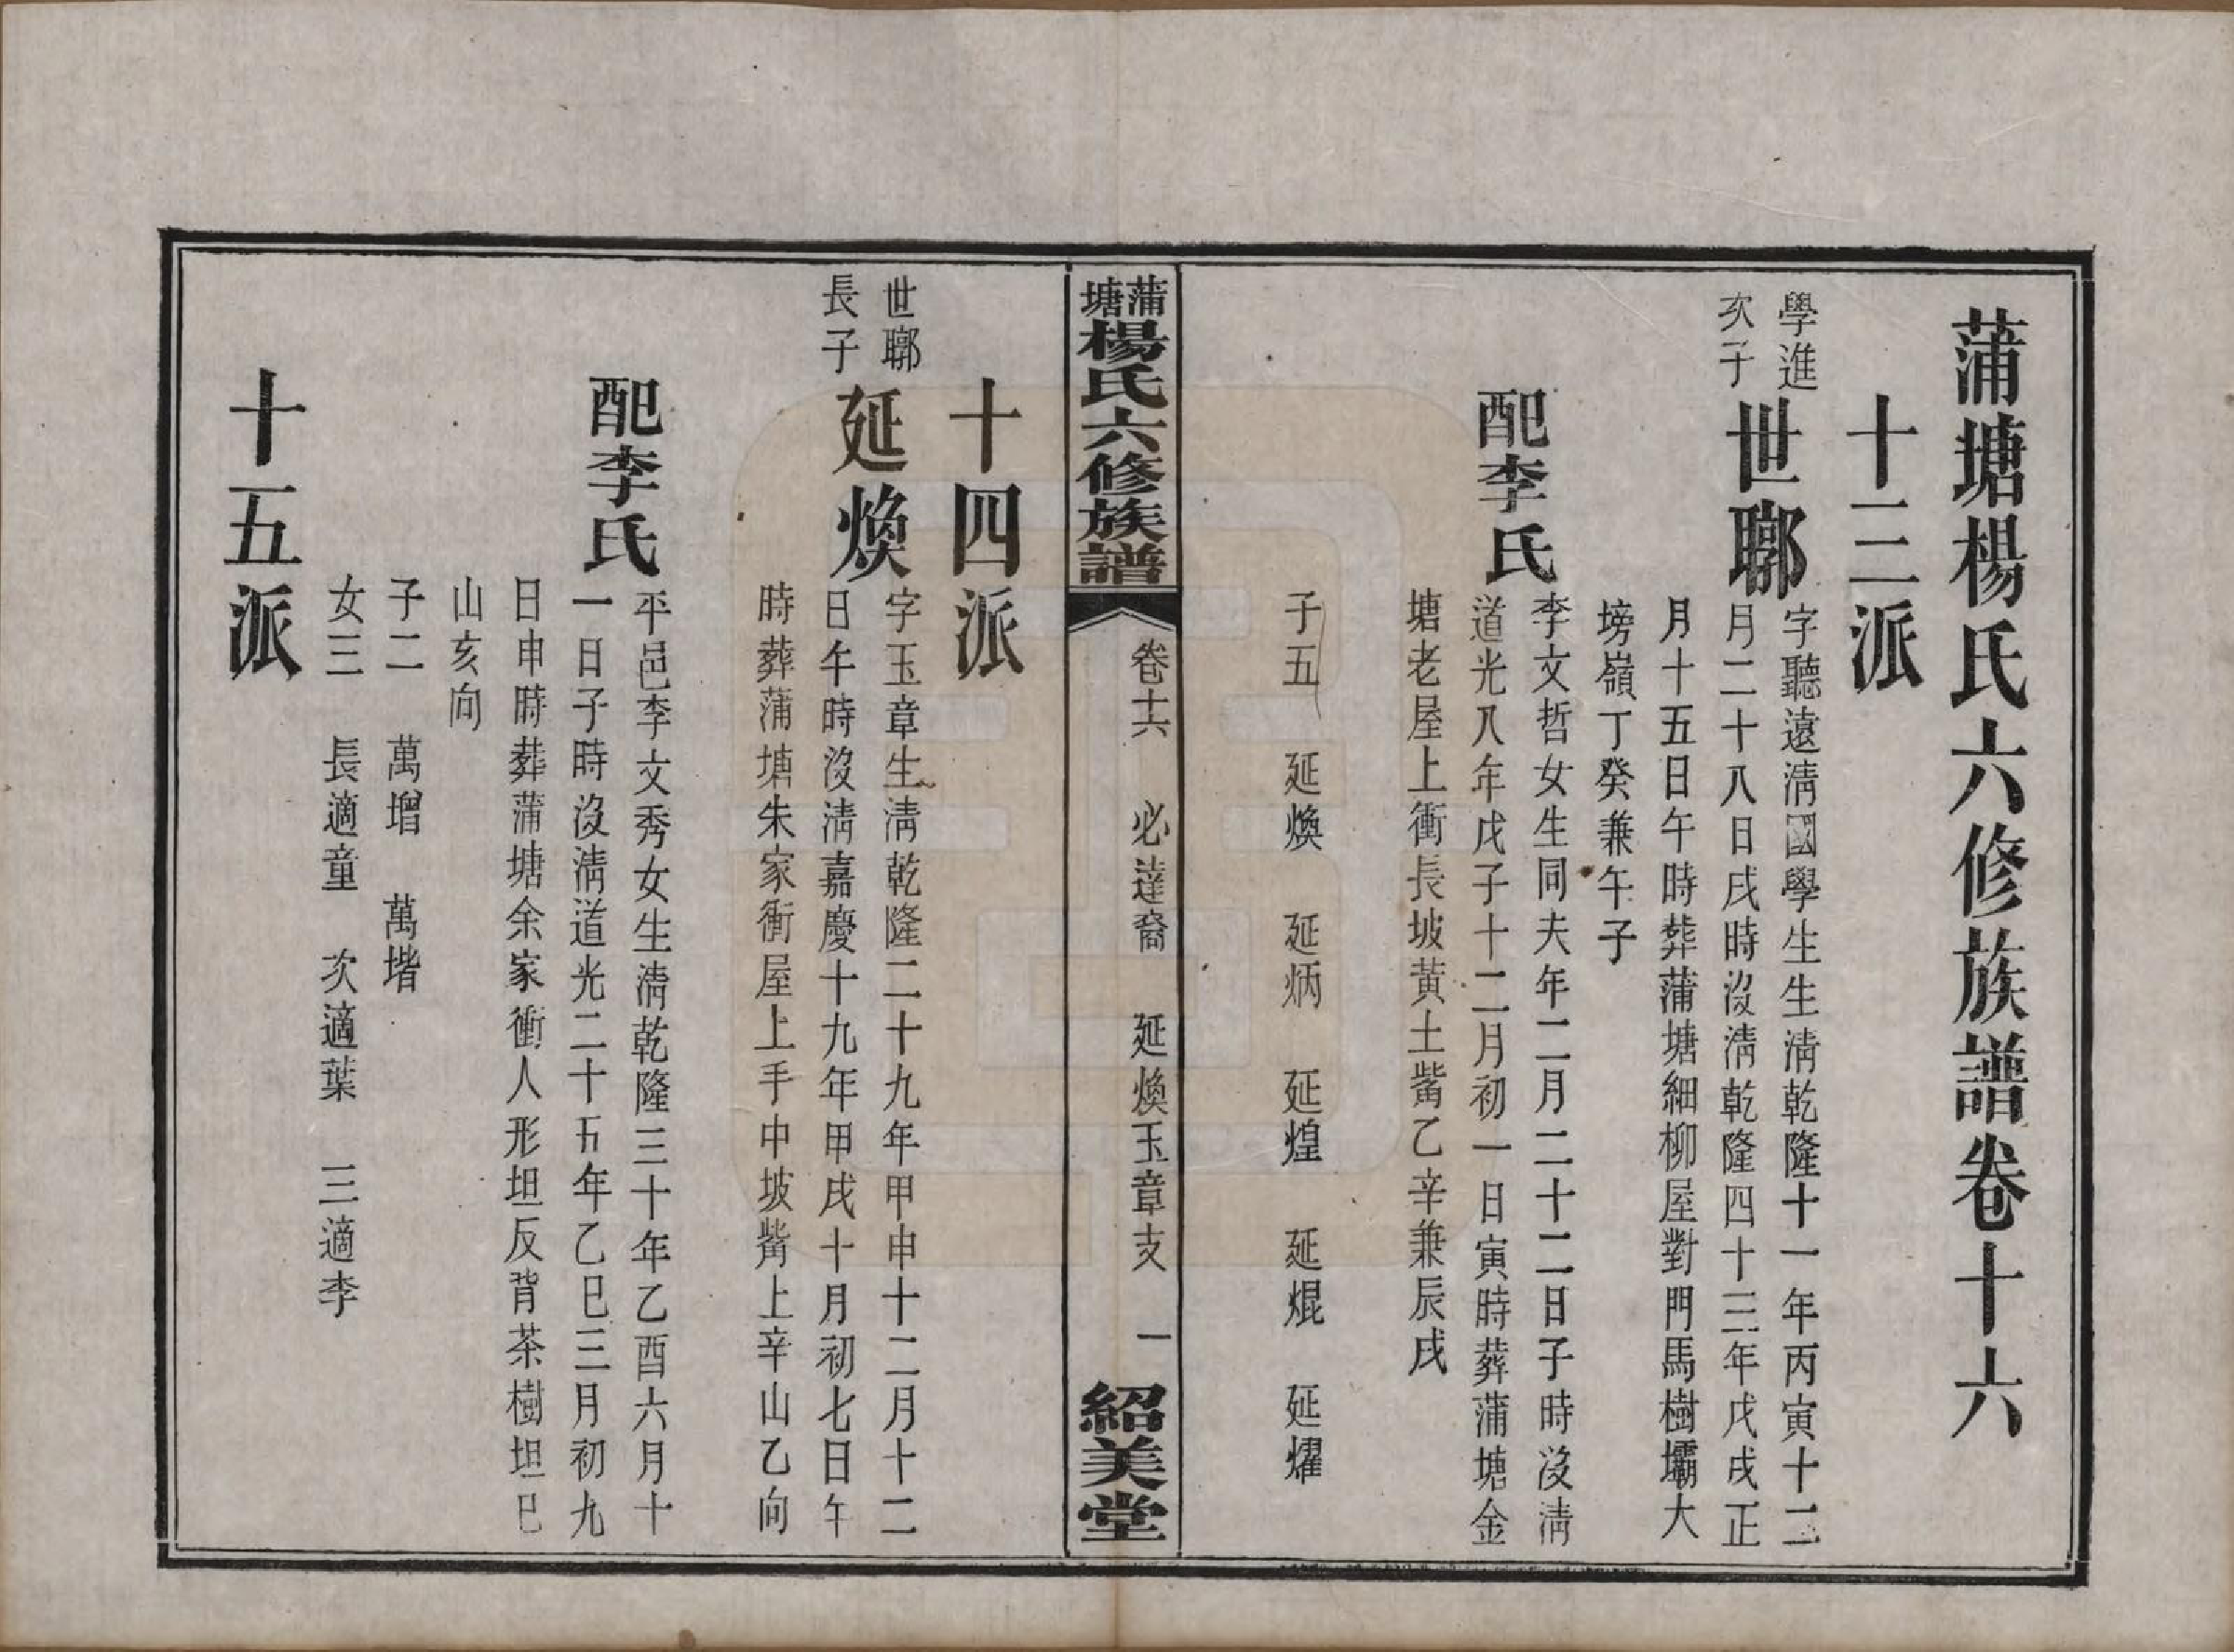 蒲塘楊氏六修族譜卷十六
十三派
學進
次子
世鄹
字聽遠淸國學生生淸乾隆十一年丙寅十二
月二十八日戌時沒淸乾隆四十三年戊戌正
月十五日午時葬蒲塘細柳屋對門馬樹壩大
塝嶺丁癸兼午子
配李氏
李文哲女生同夫年二月二十二日子時沒淸
道光八年戊子十二月初一日寅時葬蒲塘金
塘老屋上衝長坡黃土觜乙辛兼辰戌
子五 延煥 延炳 延煌 延焜 延燿
蒲塘楊氏六修族譜
卷十六 必達裔 延煥玉章支 一
紹美堂
十四派
世鄹
長子
延煥
字玉章生淸乾隆二十九年甲申十二月十二
日午時沒淸嘉慶十九年甲戌十月初七日午
時葬蒲塘朱家衝屋上手中坡觜上辛山乙向
配李氏
平邑李文秀女生淸乾隆三十年乙酉六月十
一日子時沒淸道光二十五年乙巳三月初九
日申時葬蒲塘余家衝人形坦反背茶樹坦巳
山亥向
子二 萬增 萬堦
女三 長適童 次適葉 三適李
十五派